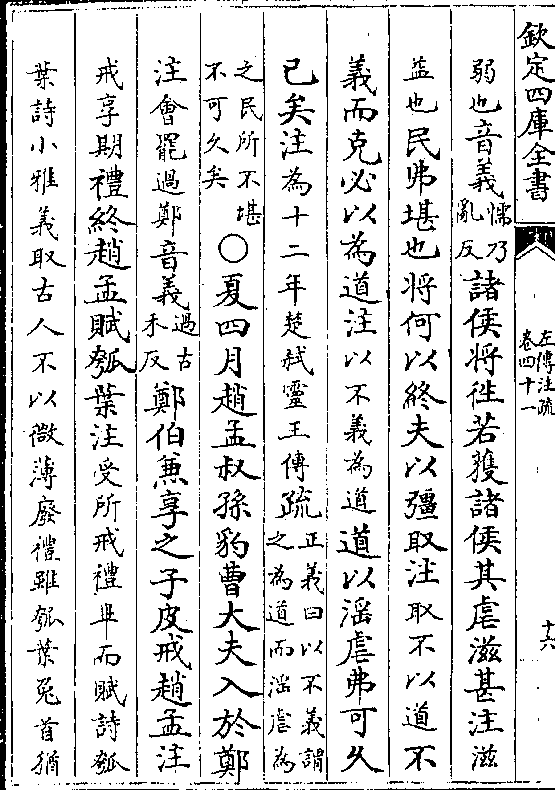 欽定四庫全書
左傳注疏
卷四十一
十六
弱也音義懦乃亂反諸侯將徃若獲諸侯其虐滋甚注滋
益也民弗堪也將何以終夫以彊取注取不以道不
義而克必以為道注以不義為道道以淫虐弗可久
已矣注為十二年楚弑靈王傳疏正義曰以不義謂之為道而淫虐為
之民所不堪不可久矣○夏四月趙孟叔孫豹曹大夫入於鄭
注會罷過鄭音義過古禾反鄭伯兼享之子皮戒趙孟注
戒享期禮終趙孟賦瓠葉注受所戒禮畢而賦詩瓠
葉詩小雅義取古人不以微薄廢禮雖瓠葉兔首猶